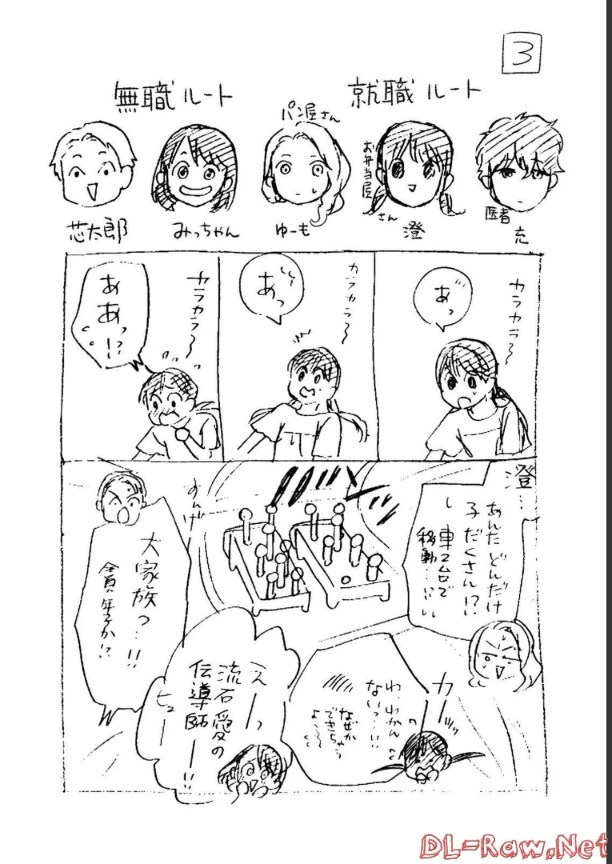 3
就職ルート
無職ルート
医者
充
お弁当屋さん
澄
パン屋さん
ゆーも
みっちゃん
芯太郎
カラカラ〜
あっ
カラカラ〜
あっ
カラカラ〜
ああっ!?
澄…
あんたどんだけ
子だくさん!?
車2台で
移動…
カーッ
わ、わかん
ないっ…!!
なぜか
できちゃう
よ〜
すんげ
大家族っ…!!
えーっ
流石愛の
伝導師ー!!
ヒュー
DL-Raw.Net